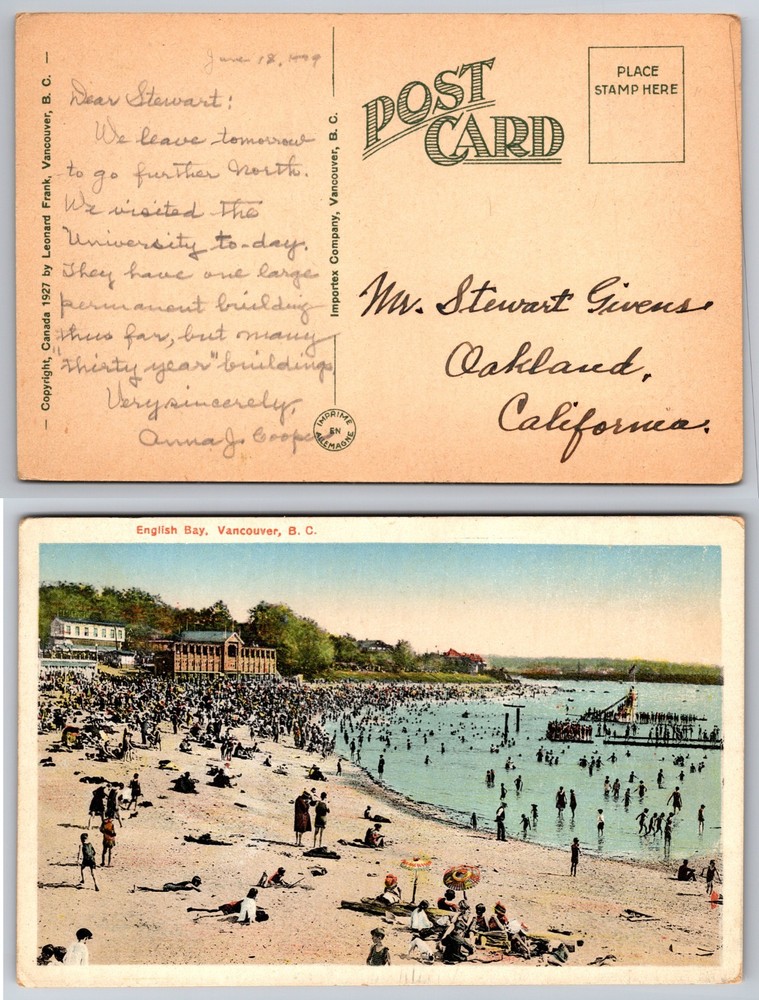 — Copyright, Canada 1927 by Leonard Frank, Vancouver, B. C. —
June 18,
Dear Stewart:
We leave tomorrow
to go further North.
We visited the
University to-day.
They have one large
permanent building
thus far, but many
"thirty year" buildings
Very sincerely,
Anna J. Cooper
Importex Company, Vancouver, B. C.
IMPRIME
EN
ALLEMAGNE
POST
CARD
PLACE
STAMP HERE
Mr. Stewart Givens
Oakland,
California.
English Bay, Vancouver, B. C.